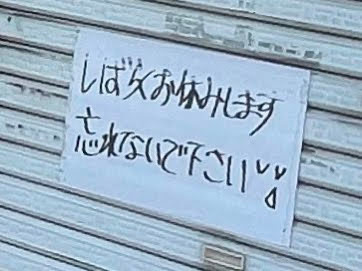 しばらくお休みします
忘れないで下さい!!